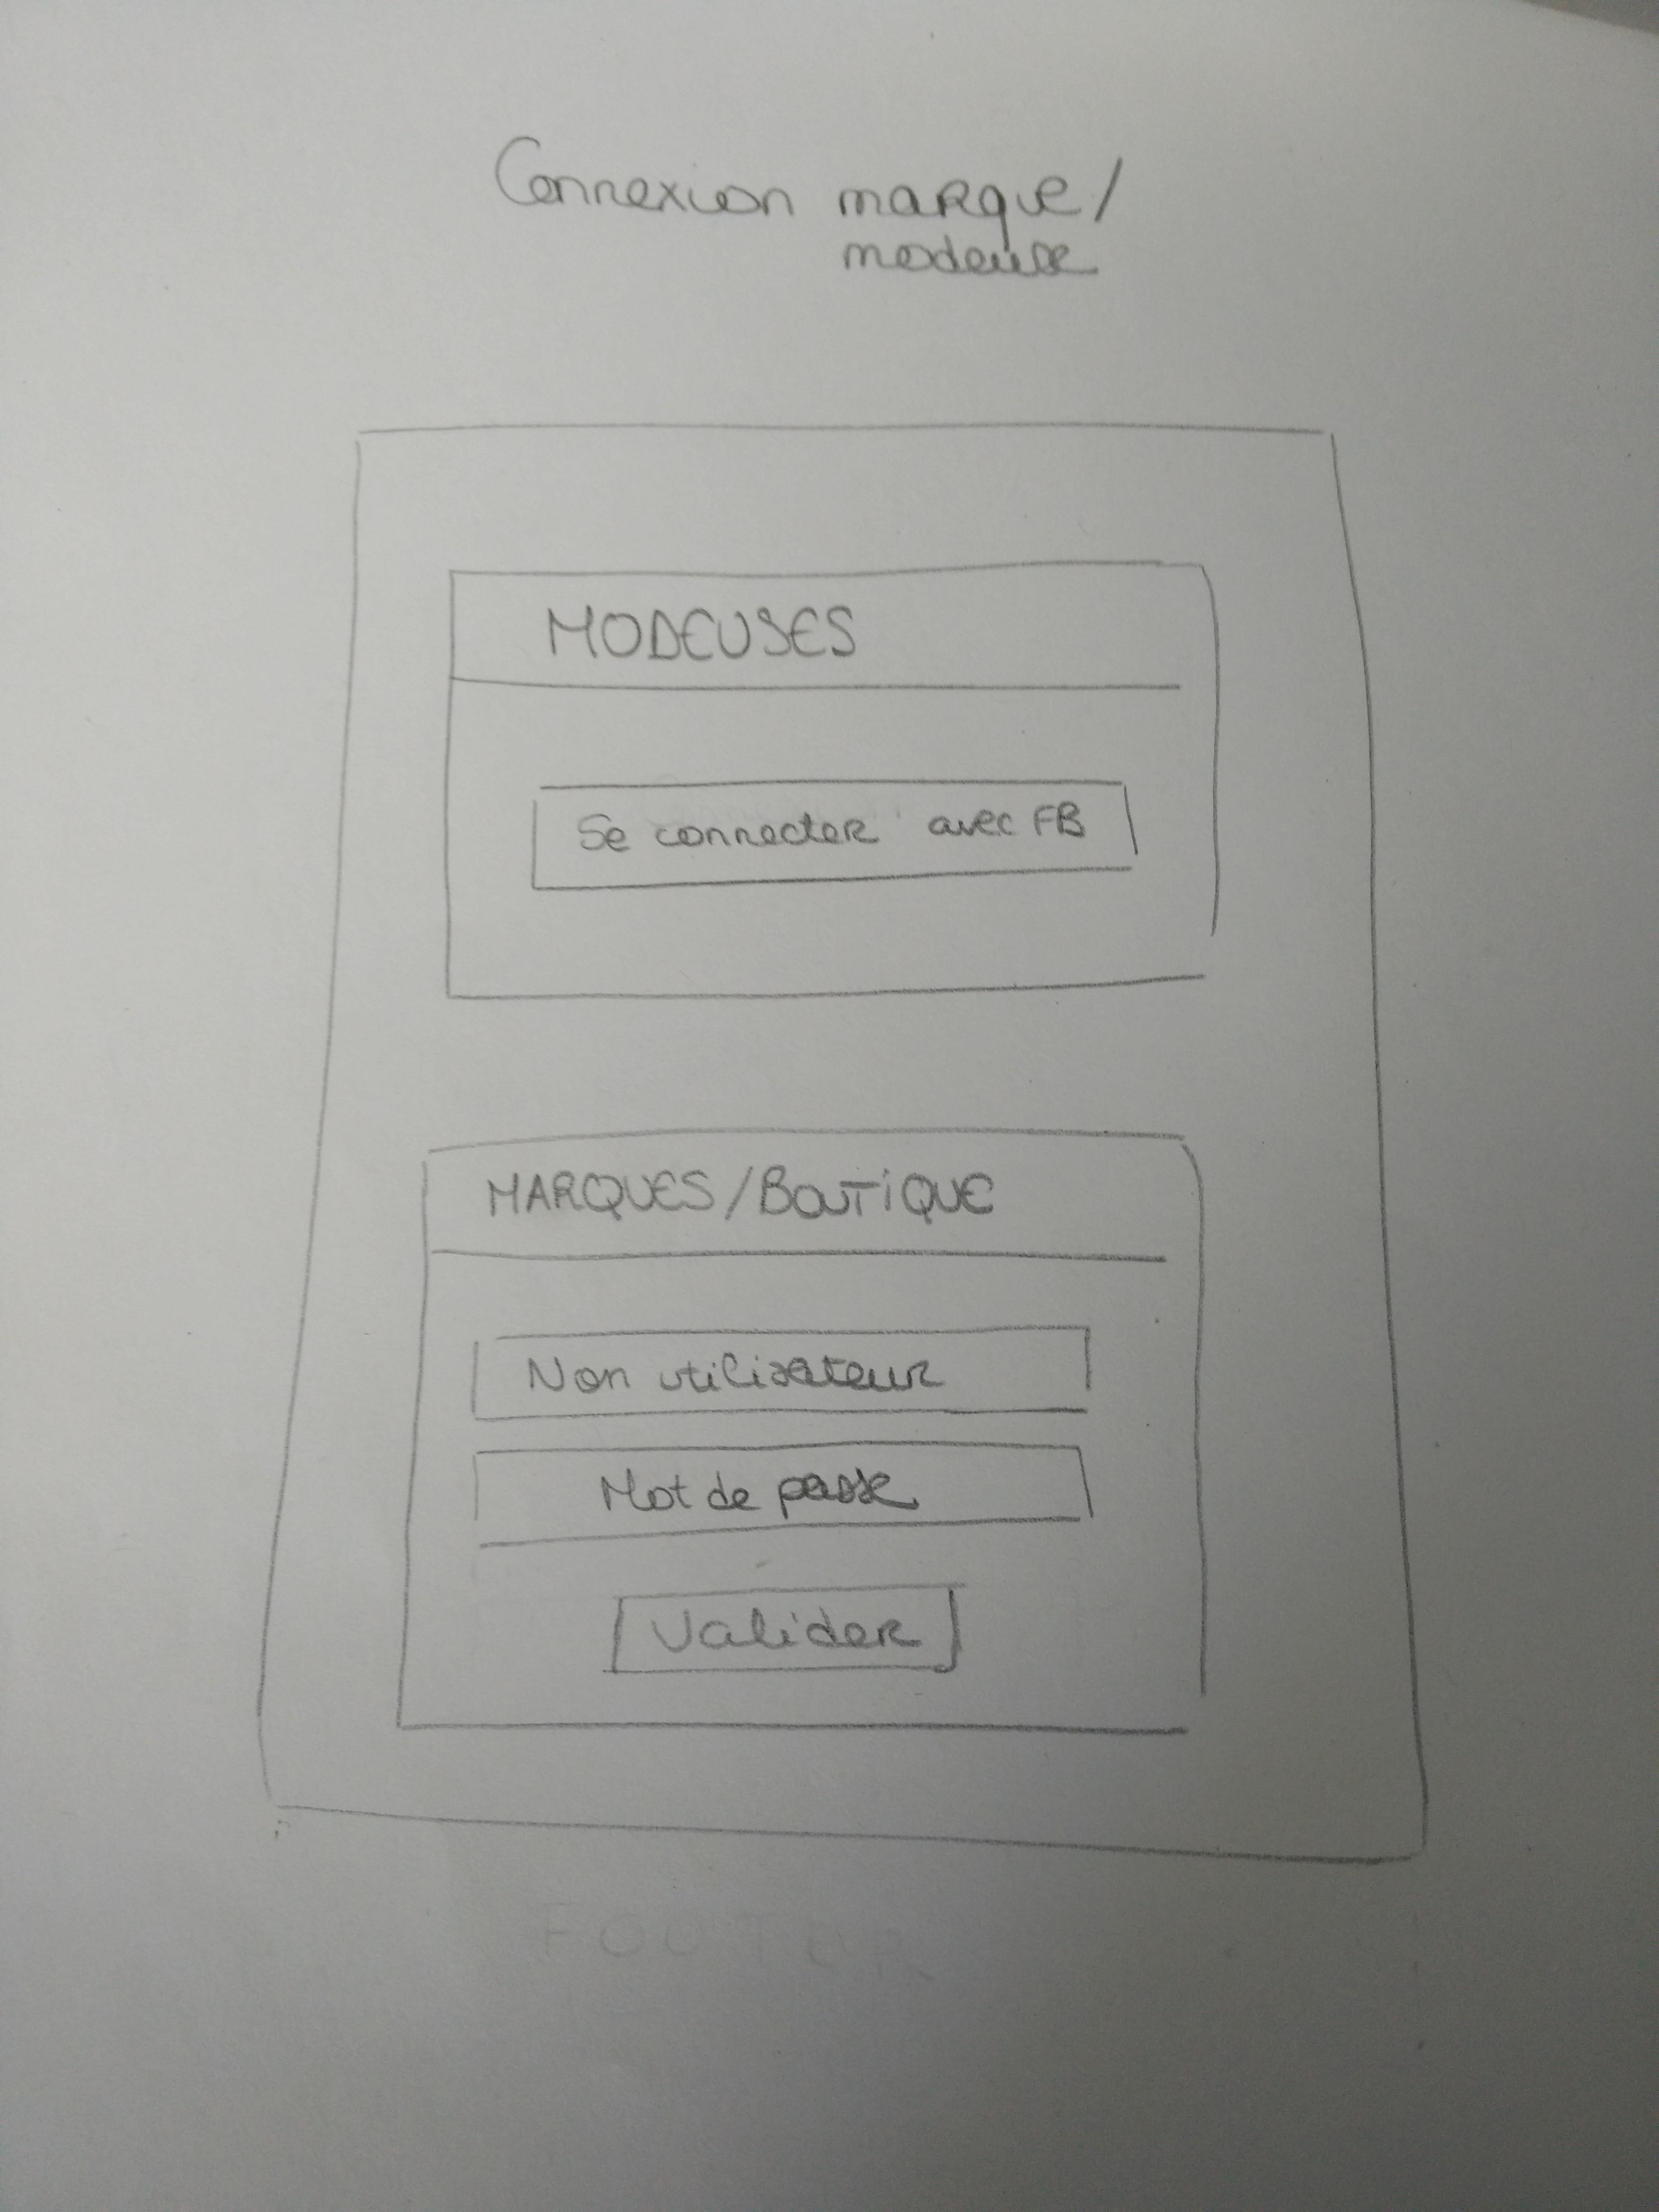 Connexion marque/
modeuse
MODEUSES
Se connecter avec FB
MARQUES/BOUTIQUE
Non utilisateur
Mot de passe
Valider
FOOTER